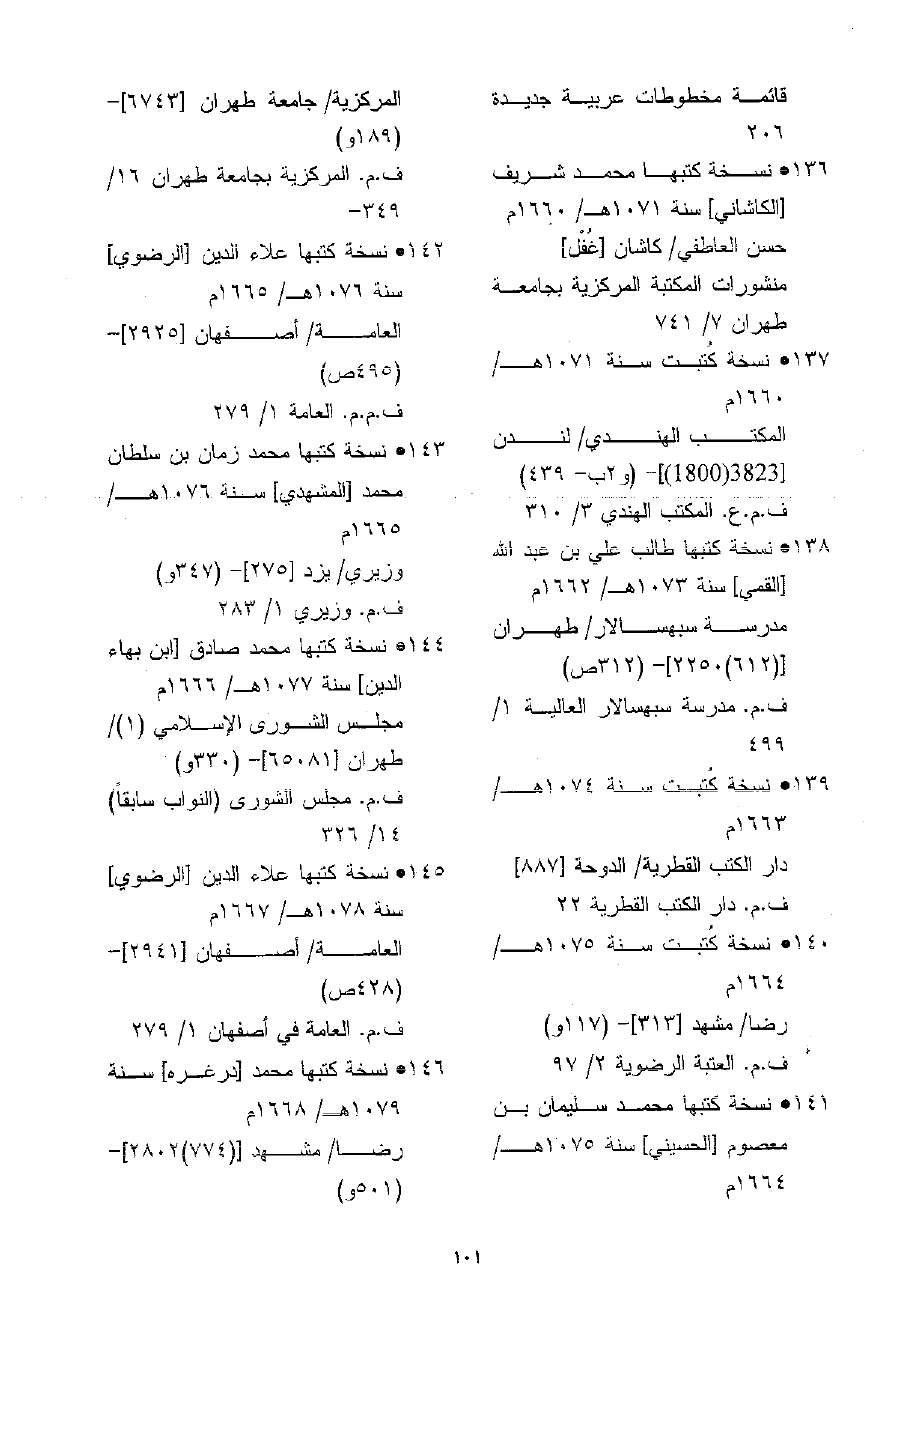 قائمة مخطوطات عربية جديدة
٢٠٦
١٣٦• نسخة كتبها محمد شريف
[الكاشاني] سنة ١٠٧١هـ/ ١٦٦٠م
حسن العاطفي/ كاشان [غُفْل]
منشورات المكتبة المركزية بجامعة
طهران ٧/ ٧٤١
١٣٧• نسخة كُتبت سنة ١٠٧١هـ/
١٦٦٠م
المكتب الهندي/ لندن
[3823(1800)]– (و٢ب– ٤٣٩)
ف.م.ع. المكتب الهندي ٣/ ٣١٠
١٣٨• نسخة كتبها طالب علي بن عبد الله
[القمي] سنة ١٠٧٣هـ/ ١٦٦٢م
مدرسة سبهسالار/ طهران
[(٦١٢)٢٢٥٠]– (٣١٢ص)
ف.م. مدرسة سبهسالار العالية ١/
٤٩٩
١٣٩• نسخة كُتبت سنة ١٠٧٤هـ/
١٦٦٣م
دار الكتب القطرية/ الدوحة [٨٨٧]
ف.م. دار الكتب القطرية ٢٢
١٤٠• نسخة كُتبت سنة ١٠٧٥هـ/
١٦٦٤م
رضا/ مشهد [٣١٣]– (١١٧و)
ف.م. العتبة الرضوية ٢/ ٩٧
١٤١• نسخة كتبها محمد سليمان بن
معصوم [الحسيني] سنة ١٠٧٥هـ/
١٦٦٤م
المركزية/ جامعة طهران [٦٧٤٣]–
(١٨٩و)
ف.م. المركزية بجامعة طهران ١٦/
٣٤٩–
١٤٢• نسخة كتبها علاء الدين [الرضوي]
سنة ١٠٧٦هـ/ ١٦٦٥م
العامة/ أصفهان [٢٩٢٥]–
(٤٩٥ص)
ف.م.م. العامة ١/ ٢٧٩
١٤٣• نسخة كتبها محمد زمان بن سلطان
محمد [المشهدي] سنة ١٠٧٦هـ/
١٦٦٥م
وزيري/ يزد [٢٧٥]– (٣٤٧و)
ف.م. وزيري ١/ ٢٨٣
١٤٤• نسخة كتبها محمد صادق [ابن بهاء
الدين] سنة ١٠٧٧هـ/ ١٦٦٦م
مجلس الشورى الإسلامي (١)/
طهران [٦٥٠٨١]– (٣٣٠و)
ف.م. مجلس الشورى (النواب سابقاً)
١٤/ ٣٢٦
١٤٥• نسخة كتبها علاء الدين [الرضوي]
سنة ١٠٧٨هـ/ ١٦٦٧م
العامة/ أصفهان [٢٩٤١]–
(٤٢٨ص)
ف.م. العامة في أصفهان ١/ ٢٧٩
١٤٦• نسخة كتبها محمد [درغره] سنة
١٠٧٩هـ/ ١٦٦٨م
رضا/ مشهد [(٧٧٤)٢٨٠٢]–
(٥٠١و)
١٠١